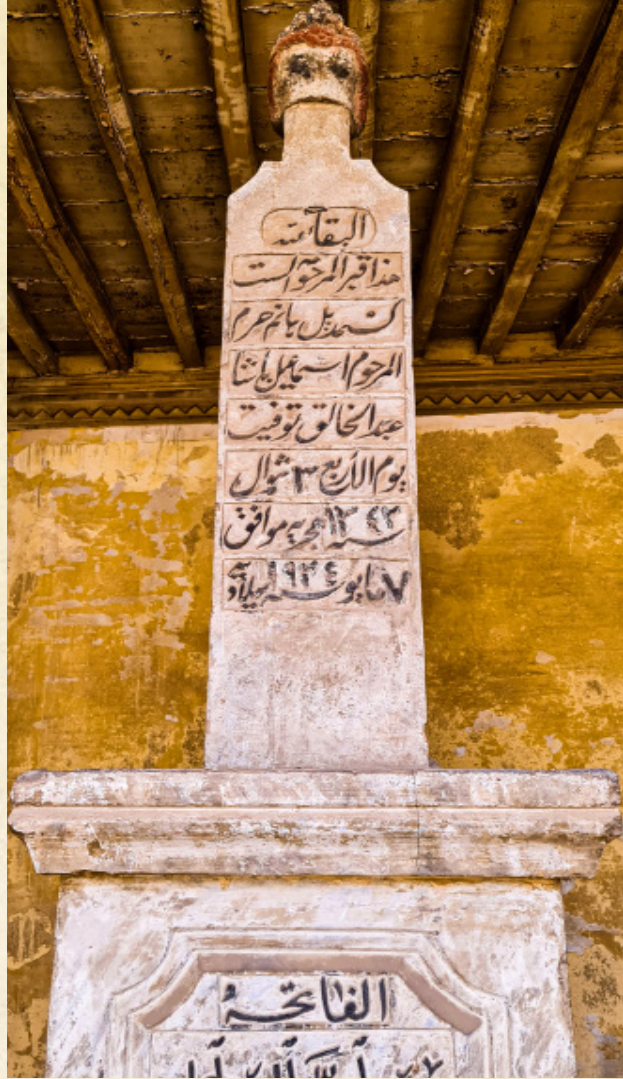 البقاء لله
هذا قبر المرحومة الست
هانم حرم
المرحوم اسماعيل باشا
عبد الخالق توفيت
يوم الأربع ٣ شوال
سنة ١٣٤٢ هجريه موافق
٧ مايو سنة ١٩٢٤ ميلاديه
الفاتحة